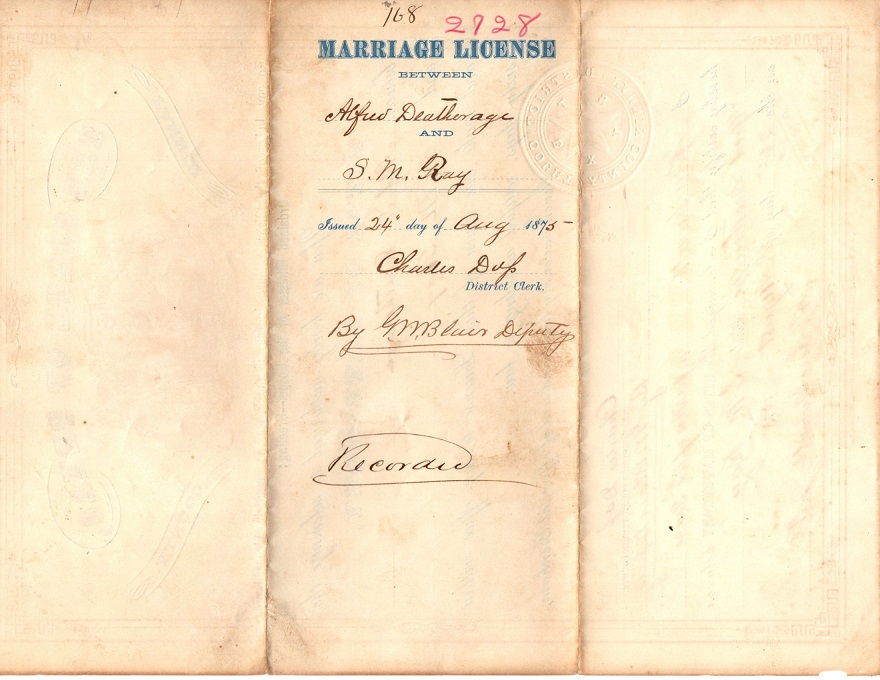 168
2728
MARRIAGE LICENSE
BETWEEN
Alfred Deatherage
AND
S. M. Ray
Issued 24" day of Aug 1875
Charles Doss
District Clerk.
By G M Blair Deputy
Recorded